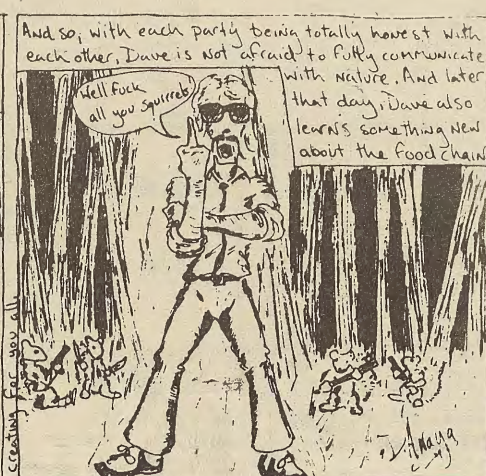 And so, with each party being totally honest with
each other, Dave is not afraid to fully communicate
with nature. And later
that day, Dave also
learns something new
about the food chain
Well fuck
all you squirrels
creating for you all.
D. Anaya